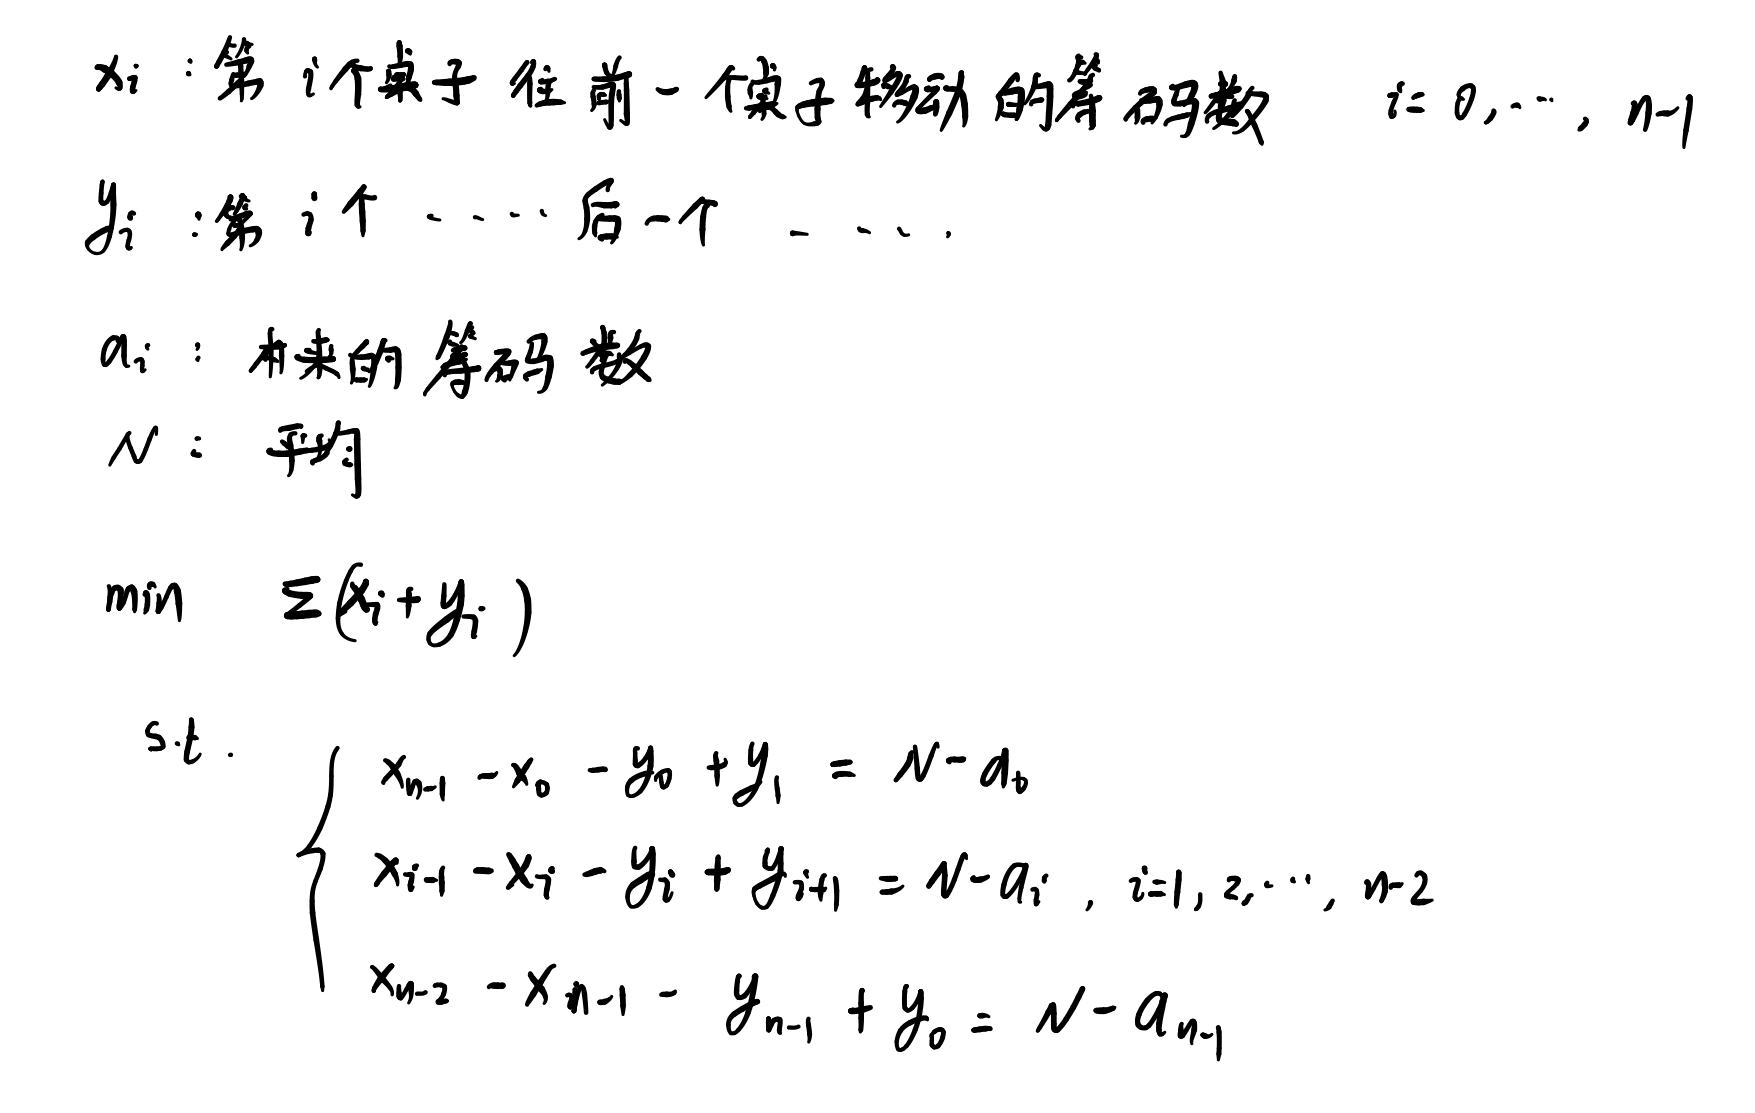 xᵢ : 第 i 个桌子 往 前一个桌子移动的筹码数 i = 0, ⋯, n-1
yᵢ : 第 i 个 ‧‧‧‧‧ 后一个 ‧‧‧‧‧
aᵢ : 本来的筹码数
N : 平均
min Σ(xᵢ + yᵢ)
s.t.
xₙ₋₁ - x₀ - y₀ + y₁ = N - a₀
xᵢ₋₁ - xᵢ - yᵢ + yᵢ₊₁ = N - aᵢ , i=1, 2, ⋯, n-2
xₙ₋₂ - xₙ₋₁ - yₙ₋₁ + y₀ = N - aₙ₋₁